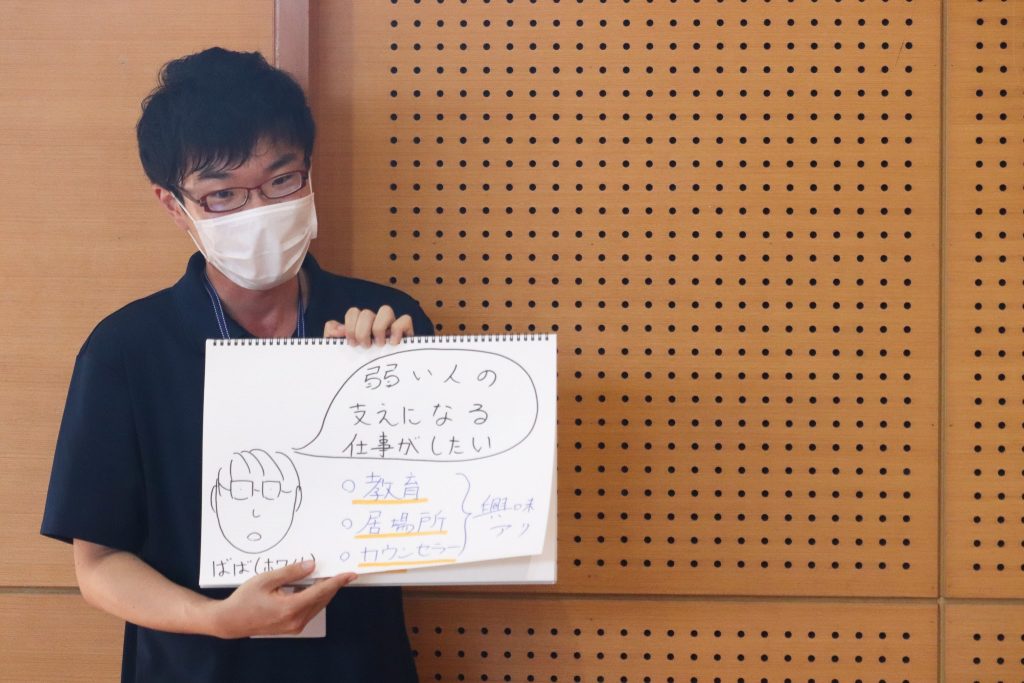 弱い人の
支えになる
仕事がしたい
○教育
○居場所
○カウンセラー
興味
アリ
ばば(ホワイト)